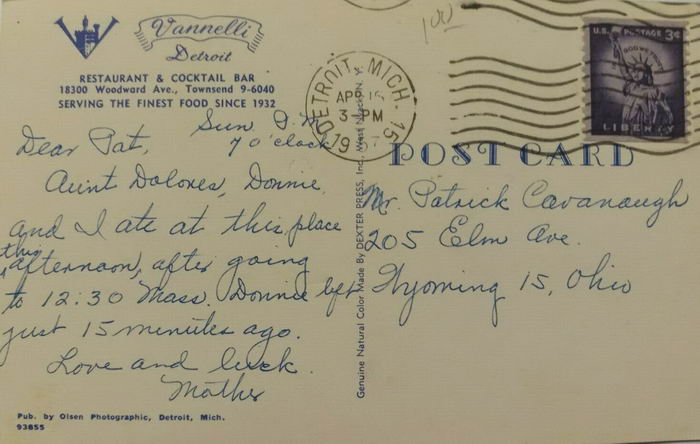 Vannelli
Detroit
RESTAURANT & COCKTAIL BAR
18300 Woodward Ave., Townsend 9-6040
SERVING THE FINEST FOOD SINCE 1932
Sun. P.M.
7 o'clock
Dear Pat,
Aunt Dolores, Donnie,
and I ate at this place
this
afternoon, after going
to 12:30 Mass. Donnie left
just 15 minutes ago.
Love and luck.
Mother
Pub. by Olsen Photographic, Detroit, Mich.
93855
Genuine Natural Color Made By DEXTER PRESS, Inc., West Nyack, N. Y.
1.00
DETROIT, MICH. 15
APR 15
3 - PM
U.S. POSTAGE 3¢
IN GOD WE TRUST
LIBERTY
POST CARD
Mr. Patrick Cavanaugh
205 Elm Ave.
Wyoming 15, Ohio